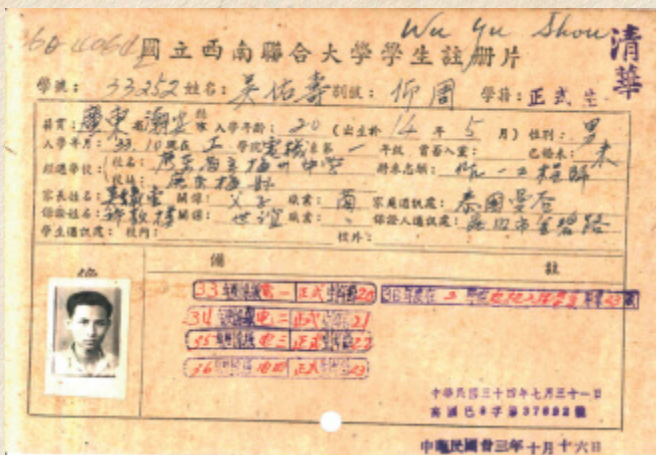 Wu Yu Shou
清華
國立西南聯合大學學生註冊片
學號：33252 姓名：吳佑壽 別號：仰周 學籍：正式生
籍貫：廣東省潮安縣 入學年齡：20（出生於14年5月）性別：男
入學年月：33.10 現在工學院電機系 一年級 曾否入黨： 已婚未：未
經過學校：校名：廣東省立梅州中學 將來志願：作一工程師
校址：廣東梅縣
家長姓名： 關係：父子 職業：商 家庭通訊處：泰國曼谷
保證姓名： 關係：世誼 職業： 保證人通訊處：昆明市金碧路
學生通訊處：校內： 校外：
像 備 註
33 電一 正式 20 36年度在工學院電機工程學系畢業 23歲
34 電二 正式 21
35 電三 正式 22
36 電四 正式 23
中華民國三十四年七月三十一日
高國巳8字第37892號
中華民國卅三年十月十六日